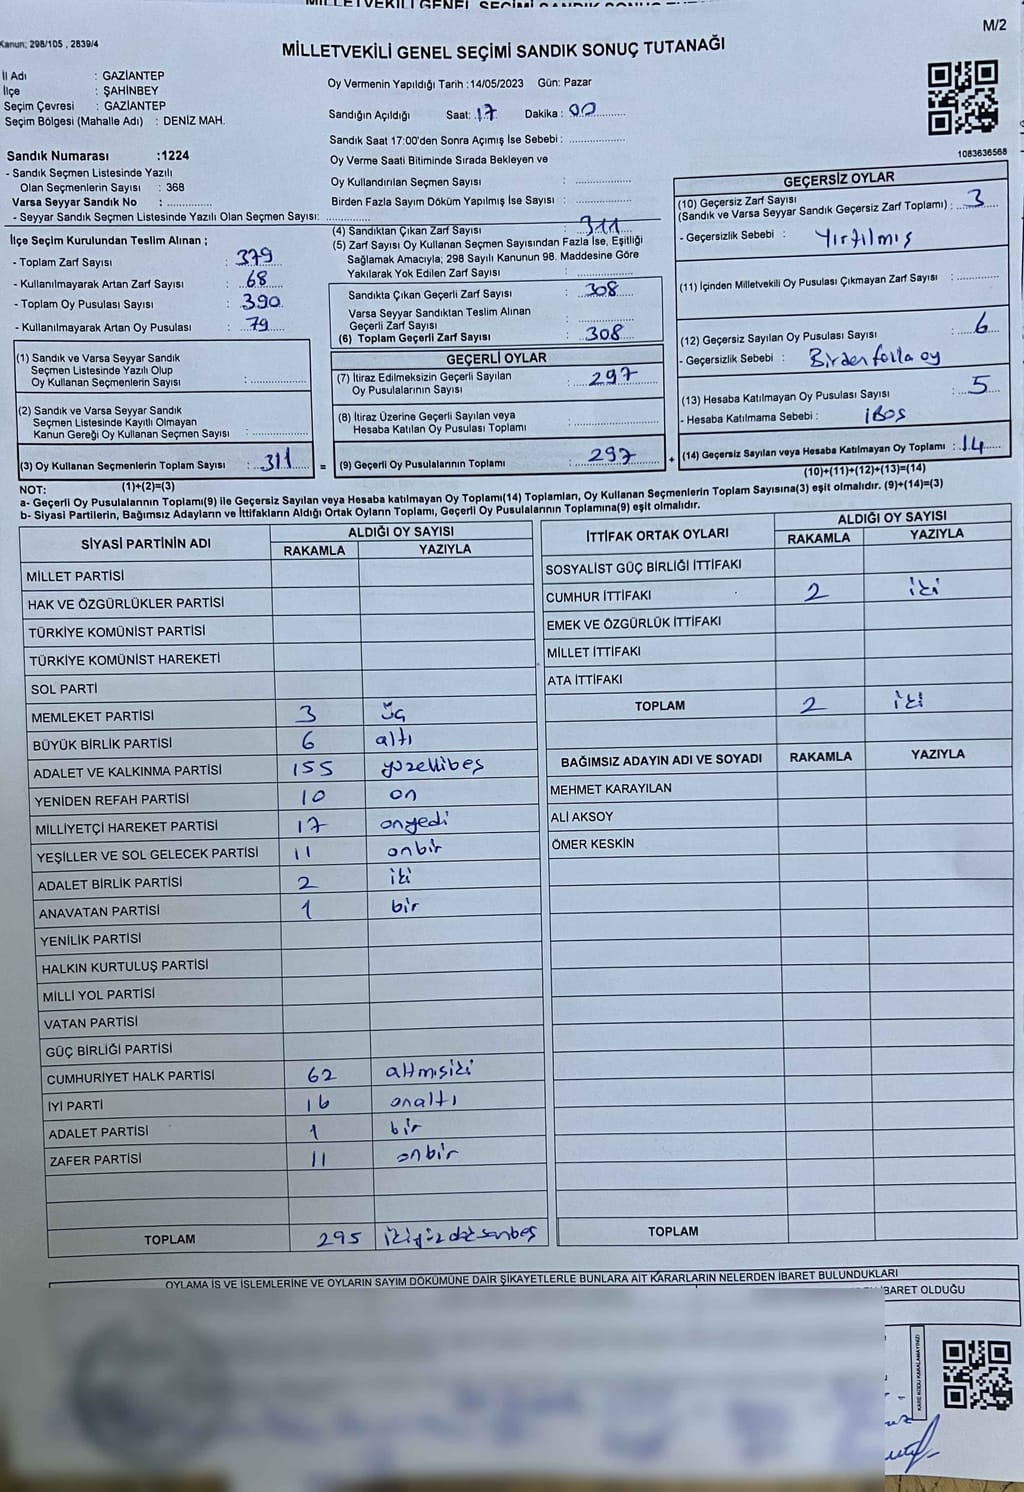 M/2
Kanun: 298/105 , 2839/4
MİLLETVEKİLİ GENEL SEÇİMİ SANDIK SONUÇ TUTANAĞI
İl Adı : GAZİANTEP
İlçe : ŞAHİNBEY
Seçim Çevresi : GAZİANTEP
Seçim Bölgesi (Mahalle Adı) : DENİZ MAH.
Sandık Numarası :1224
- Sandık Seçmen Listesinde Yazılı
Olan Seçmenlerin Sayısı : 368
Varsa Seyyar Sandık No : ..............
- Seyyar Sandık Seçmen Listesinde Yazılı Olan Seçmen Sayısı: ..............
Oy Vermenin Yapıldığı Tarih :14/05/2023 Gün: Pazar
Sandığın Açıldığı Saat: 17 Dakika : 00
Sandık Saat 17:00'den Sonra Açımış İse Sebebi : ..............
Oy Verme Saati Bitiminde Sırada Bekleyen ve
Oy Kullandırılan Seçmen Sayısı : ..............
Birden Fazla Sayım Döküm Yapılmış İse Sayısı : ..............
1083636568
İlçe Seçim Kurulundan Teslim Alınan ;
- Toplam Zarf Sayısı : 379
- Kullanılmayarak Artan Zarf Sayısı : 68
- Toplam Oy Pusulası Sayısı : 390
- Kullanılmayarak Artan Oy Pusulası : 79
(1) Sandık ve Varsa Seyyar Sandık
Seçmen Listesinde Yazılı Olup
Oy Kullanan Seçmenlerin Sayısı : ..............
(2) Sandık ve Varsa Seyyar Sandık
Seçmen Listesinde Kayıtlı Olmayan
Kanun Gereği Oy Kullanan Seçmen Sayısı : ..............
(3) Oy Kullanan Seçmenlerin Toplam Sayısı : 311 =
(1)+(2)=(3)
(4) Sandıktan Çıkan Zarf Sayısı : 311
(5) Zarf Sayısı Oy Kullanan Seçmen Sayısından Fazla İse, Eşitliği
Sağlamak Amacıyla; 298 Sayılı Kanunun 98. Maddesine Göre
Yakılarak Yok Edilen Zarf Sayısı : ..............
Sandıkta Çıkan Geçerli Zarf Sayısı : 308
Varsa Seyyar Sandıktan Teslim Alınan
Geçerli Zarf Sayısı : ..............
(6) Toplam Geçerli Zarf Sayısı : 308
GEÇERLİ OYLAR
(7) İtiraz Edilmeksizin Geçerli Sayılan
Oy Pusulalarının Sayısı : 297
(8) İtiraz Üzerine Geçerli Sayılan veya
Hesaba Katılan Oy Pusulası Toplamı : ..............
(9) Geçerli Oy Pusulalarının Toplamı : 297 +
GEÇERSİZ OYLAR
(10) Geçersiz Zarf Sayısı
(Sandık ve Varsa Seyyar Sandık Geçersiz Zarf Toplamı) : 3
- Geçersizlik Sebebi : Yırtılmış
(11) İçinden Milletvekili Oy Pusulası Çıkmayan Zarf Sayısı : ..............
(12) Geçersiz Sayılan Oy Pusulası Sayısı : 6
- Geçersizlik Sebebi : Birden folla oy
(13) Hesaba Katılmayan Oy Pusulası Sayısı : 5
- Hesaba Katılmama Sebebi : İBOŞ
(14) Geçersiz Sayılan veya Hesaba Katılmayan Oy Toplamı : 14
(10)+(11)+(12)+(13)=(14)
NOT:
a- Geçerli Oy Pusulasının Toplamı(9) ile Geçersiz Sayılan veya Hesaba katılmayan Oy Toplamı(14) Toplamları, Oy Kullanan Seçmenlerin Toplam Sayısına(3) eşit olmalıdır. (9)+(14)=(3)
b- Siyasi Partilerin, Bağımsız Adayların ve İttifakların Aldığı Ortak Oyların Toplamı, Geçerli Oy Pusulasının Toplamına(9) eşit olmalıdır.
SİYASİ PARTİNİN ADI ALDIĞI OY SAYISI
RAKAMLA YAZIYLA
MİLLET PARTİSİ
HAK VE ÖZGÜRLÜKLER PARTİSİ
TÜRKİYE KOMÜNİST PARTİSİ
TÜRKİYE KOMÜNİST HAREKETİ
SOL PARTİ
MEMLEKET PARTİSİ 3 üç
BÜYÜK BİRLİK PARTİSİ 6 altı
ADALET VE KALKINMA PARTİSİ 155 yüzellibeş
YENİDEN REFAH PARTİSİ 10 on
MİLLİYETÇİ HAREKET PARTİSİ 17 onyedi
YEŞİLLER VE SOL GELECEK PARTİSİ 11 onbir
ADALET BİRLİK PARTİSİ 2 iki
ANAVATAN PARTİSİ 1 bir
YENİLİK PARTİSİ
HALKIN KURTULUŞ PARTİSİ
MİLLİ YOL PARTİSİ
VATAN PARTİSİ
GÜÇ BİRLİĞİ PARTİSİ
CUMHURİYET HALK PARTİSİ 62 altmışiki
İYİ PARTİ 16 onaltı
ADALET PARTİSİ 1 bir
ZAFER PARTİSİ 11 onbir
TOPLAM 295 ikiyüzdoksanbeş
İTTİFAK ORTAK OYLARI ALDIĞI OY SAYISI
RAKAMLA YAZIYLA
SOSYALİST GÜÇ BİRLİĞİ İTTİFAKI
CUMHUR İTTİFAKI 2 iki
EMEK VE ÖZGÜRLÜK İTTİFAKI
MİLLET İTTİFAKI
ATA İTTİFAKI
TOPLAM 2 iki
BAĞIMSIZ ADAYIN ADI VE SOYADI RAKAMLA YAZIYLA
MEHMET KARAYILAN
ALİ AKSOY
ÖMER KESKİN
TOPLAM
OYLAMA İŞ VE İŞLEMLERİNE VE OYLARIN SAYIM DÖKÜMÜNE DAİR ŞİKAYETLERLE BUNLARA AİT KARARLARIN NELERDEN İBARET BULUNDUKLARI
İBARET OLDUĞU
KARE KODU KARALAMAYINIZ!